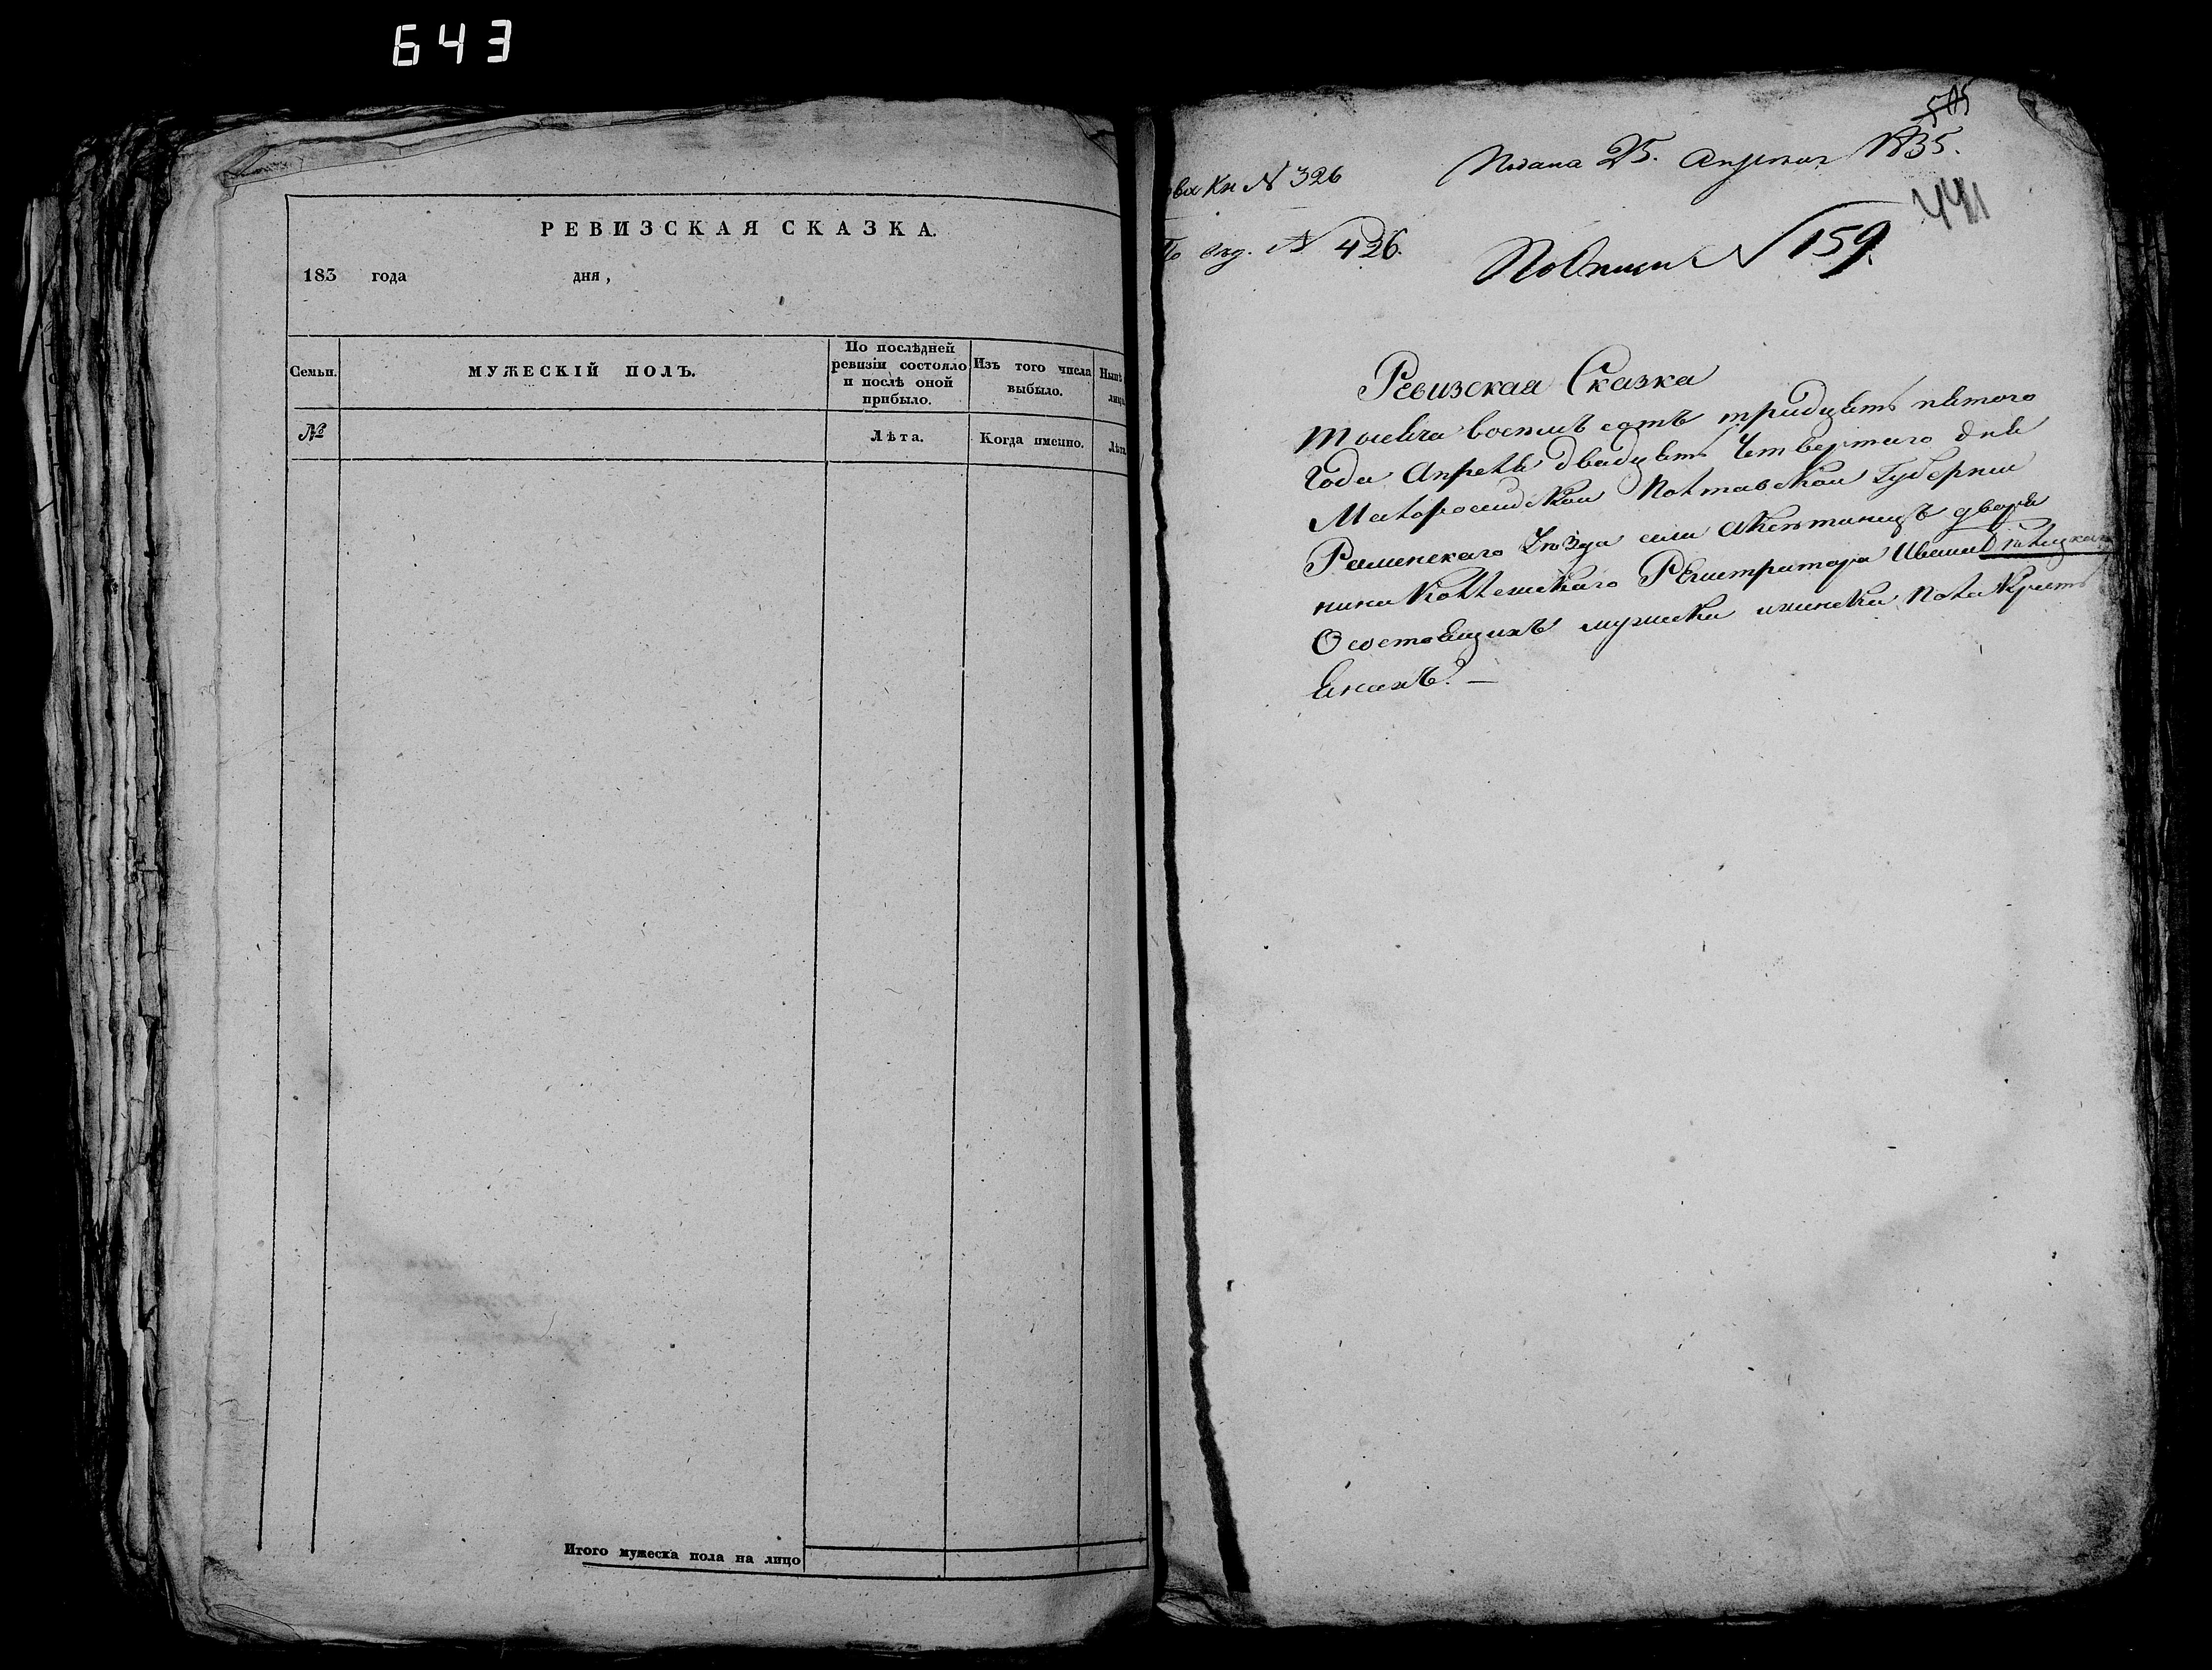 643
РЕВИЗСКАЯ СКАЗКА.
183 года дня,
Семьи.
МУЖЕСКІЙ ПОЛЪ.
По послѣдней
ревизіи состояло
и послѣ оной
прибыло.
Изъ того числа
выбыло.
Нынѣ
лицо
№
Лѣта.
Когда именно.
Лѣта
Итого мужеска пола на лицо
505
Подана 25. Апреля 1835.
Кн № 326
441
№ 426.
№ 159.
Ревизская Сказка
тысеча восемъ сотъ тридцять пятого
Года Апреля двадцять Четвертаго дня
Малороссийской Полтавской Губернии
Роменскаго уѣзда села дворя
нина Коллежскаго Регистратора Ивана
О состоящихъ мужска и женска пола крестъ
янахъ. —